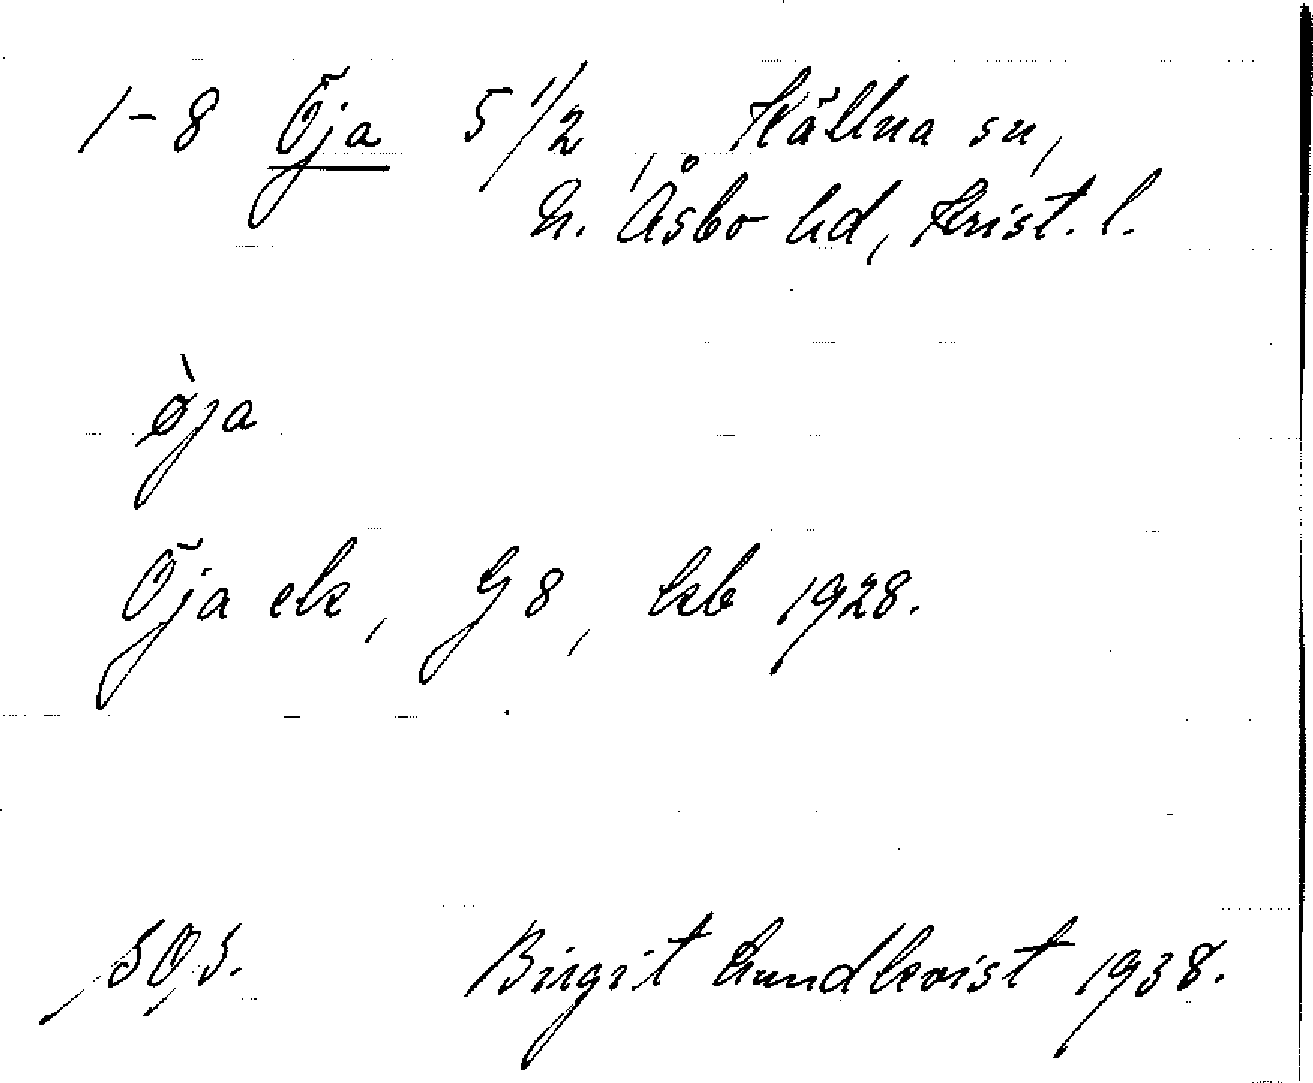 1-8 Öja 5 1/2, Källna sn,
N. Åsbo hd, Krist. l.
ø̀ja
Öja ek, G8, kb 1928.
SOS. Birgit Lundkvist 1938.